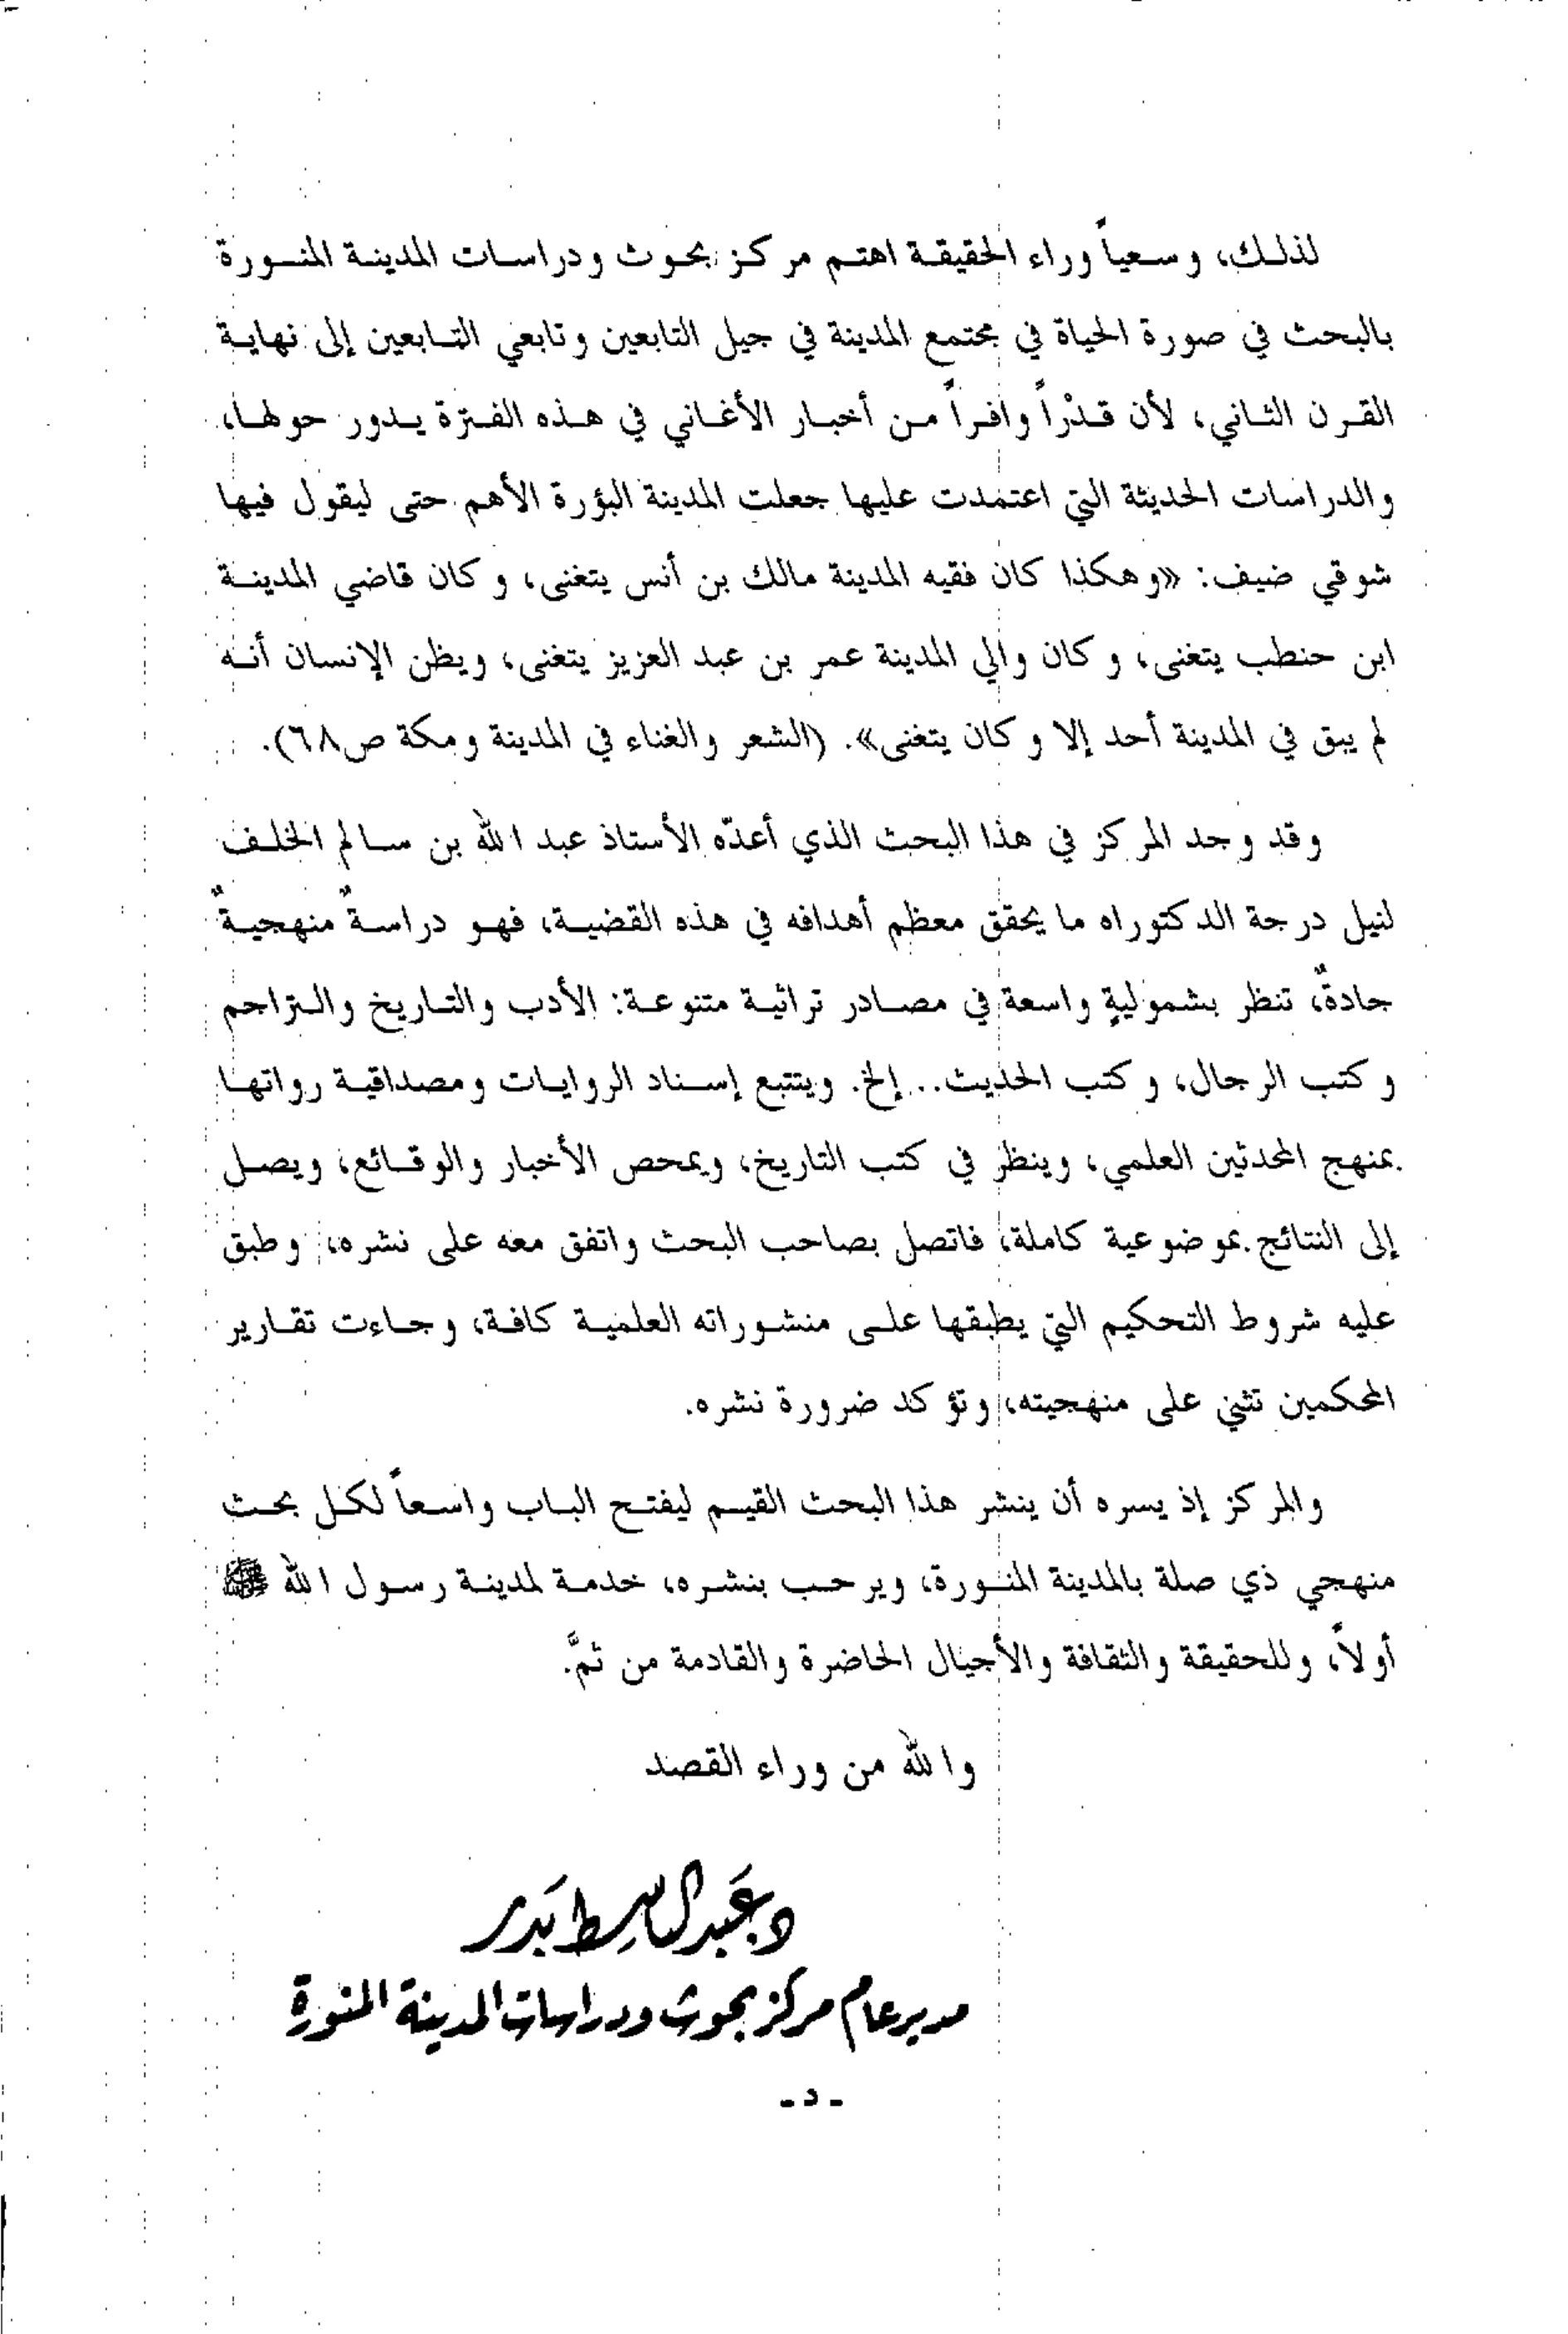 لذلك، وسعياً وراء الحقيقة اهتم مركز بحوث ودراسات المدينة المنورة
بالبحث في صورة الحياة في مجتمع المدينة في جيل التابعين وتابعي التابعين إلى نهاية
القرن الثاني، لأن قدْراً وافراً من أخبار الأغاني في هذه الفترة يدور حولها،
والدراسات الحديثة التي اعتمدت عليها جعلت المدينة البؤرة الأهم حتى ليقول فيها
شوقي ضيف: «وهكذا كان فقيه المدينة مالك بن أنس يتغنى، وكان قاضي المدينة
ابن حنطب يتغنى، وكان والي المدينة عمر بن عبد العزيز يتغنى، ويظن الإنسان أنه
لم يبق في المدينة أحد إلا وكان يتغنى». (الشعر والغناء في المدينة ومكة ص٦٨).
وقد وجد المركز في هذا البحث الذي أعدّه الأستاذ عبد الله بن سالم الخلف
لنيل درجة الدكتوراه ما يحقق معظم أهدافه في هذه القضية، فهو دراسةٌ منهجيةٌ
جادةٌ، تنظر بشموليةٍ واسعة في مصادر تراثية متنوعة: الأدب والتاريخ والتراجم
وكتب الرجال، وكتب الحديث.. إلخ. ويتتبع إسناد الروايات ومصداقية رواتها
بمنهج المحدثين العلمي، وينظر في كتب التاريخ، ويمحص الأخبار والوقائع، ويصل
إلى النتائج بموضوعية كاملة، فاتصل بصاحب البحث واتفق معه على نشره، وطبق
عليه شروط التحكيم التي يطبقها على منشوراته العلمية كافة، وجاءت تقارير
المحكمين تثني على منهجيته، وتؤكد ضرورة نشره.
والمركز إذ يسره أن ينشر هذا البحث القيم ليفتح الباب واسعاً لكل بحث
منهجي ذي صلة بالمدينة المنورة، ويرحب بنشره، خدمة لمدينة رسول الله ﷺ
أولاً، وللحقيقة والثقافة والأجيال الحاضرة والقادمة من ثمَّ.
والله من وراء القصد
د. عَبدالباسِط بَدر
مدير عام مركز بحوث ودراسات المدينة المنورة
- د -